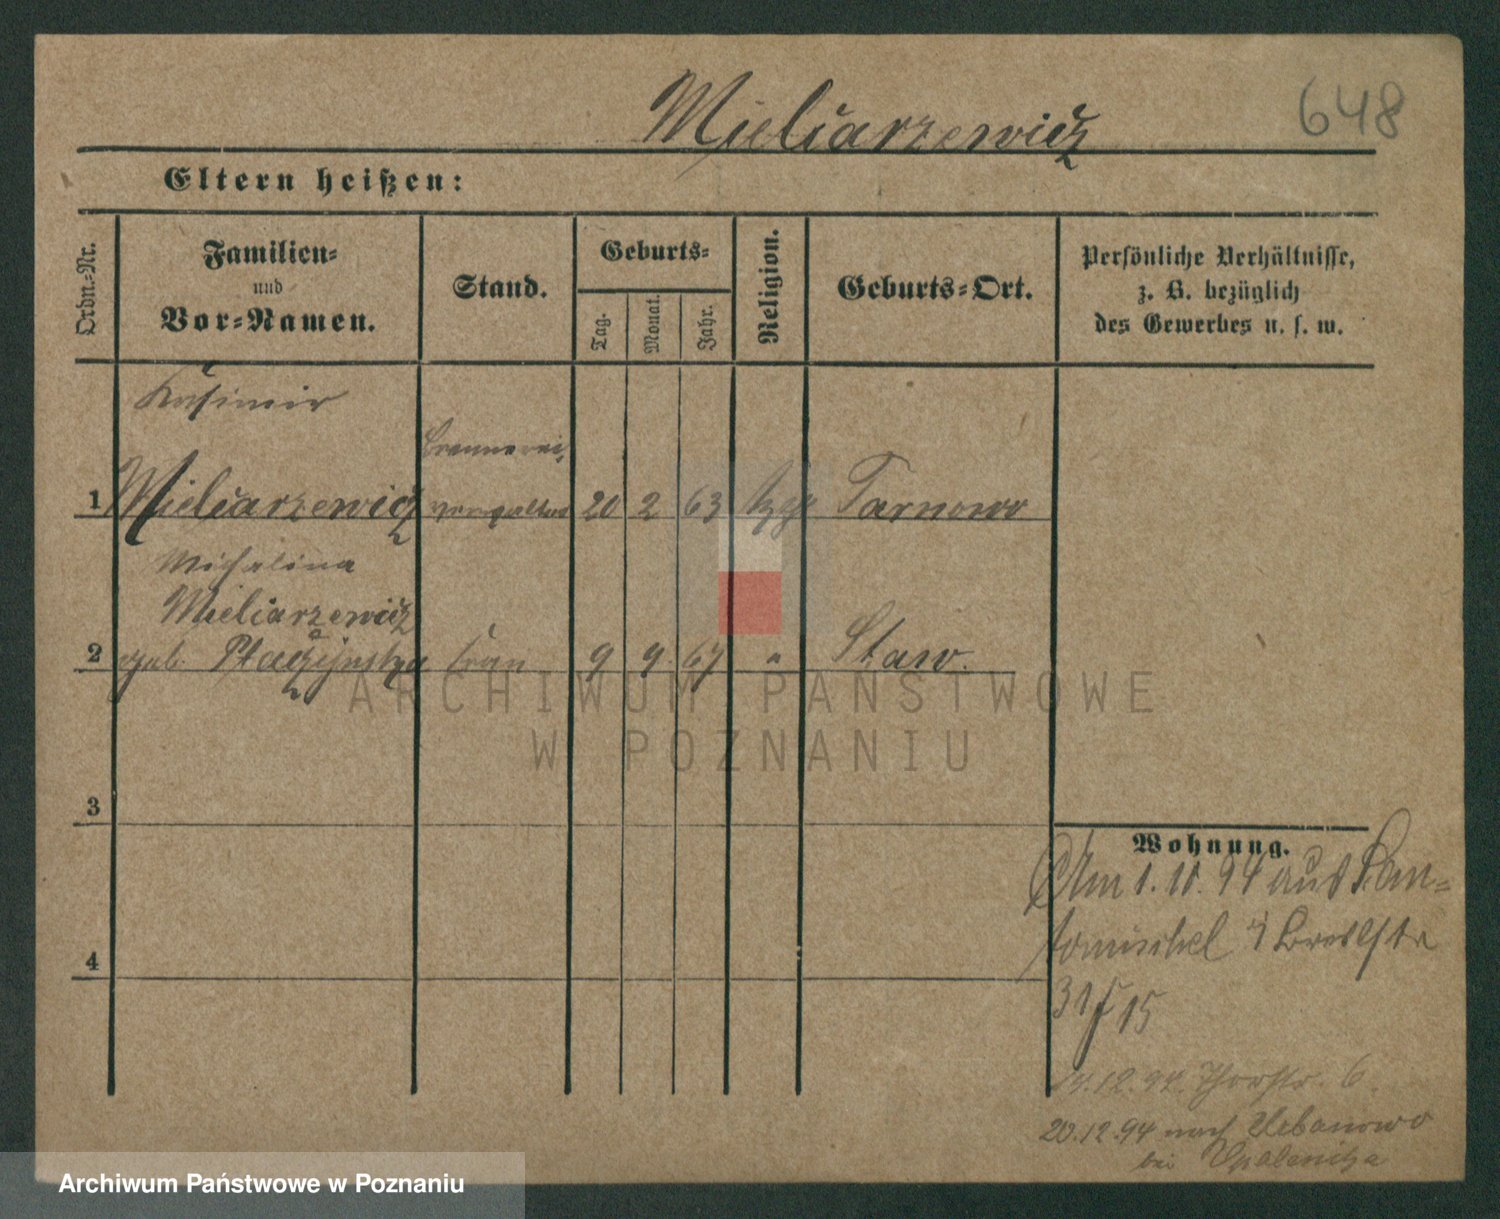 Mielcarzewicz
648
Eltern heißen:
Ordn.-Nr.
Familien-
und
Vor-Namen.
Stand.
Geburts-
Tag.
Monat.
Jahr.
Religion.
Geburts-Ort.
Persönliche Verhältnisse,
z. B. bezüglich
des Gewerbes u. s. w.
Kasimir
Brennerei
1 Mielcarzewicz verwalter 20 2 63 Tarnowo
Michalina
Mielcarzewicz
2 geb. Frau 9 9 67 " Staw.
3
4
Wohnung.
Am 1. 11. 94 aus
Breslstr
31 15
14.12.94. 6.
20.12.94 nach Urbanowo
bei Opalenitza
ARCHIWUM PAŃSTWOWE
W POZNANIU
Archiwum Państwowe w Poznaniu